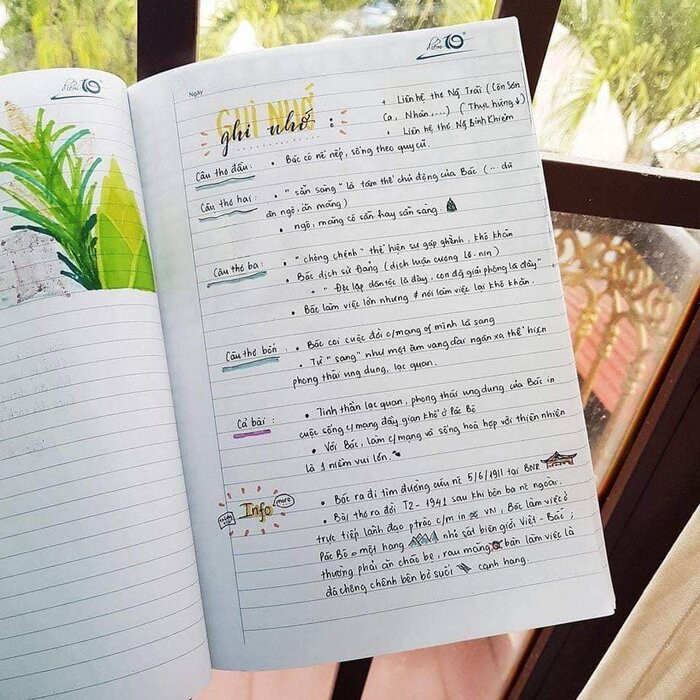 Ngày
GHI NHỚ
ghi nhớ :
+ Liên hệ thơ Ng̃ Trãi (Côn Sơn
Ca, Nhàn,....) (Thuật hứng)
• Liên hệ thơ Ng̃ Bỉnh Khiêm
Câu thơ đầu : • Bác có nề nếp, sống theo quy củ.
Câu thơ hai : • "sẵn sàng" là tâm thế chủ động của Bác (... dù
ăn ngô, ăn măng)
• ngô, măng có sẵn hay sẵn sàng.
Câu thơ ba : • "chông chênh" thể hiện sự gập ghềnh, khó khăn
• Bác dịch sử Đảng (dịch luận cương Lê-nin)
+ "Độc lập dân tộc là đây, con đg giải phóng là đây"
• Bác làm việc lớn nhưng ≠ nói làm việc lại khó khăn.
Câu thơ bốn : • Bác coi cuộc đời c/mạng of mình là sang
• Từ "sang" như một âm vang dài ngân xa thể hiện
phong thái ung dung, lạc quan.
Cả bài : • Tinh thần lạc quan, phong thái ung dung của Bác in
cuộc sống c/mạng đầy gian khổ ở Pác Bó
• Với Bác, làm c/mạng và sống hoà hợp với thiên nhiên
là 1 niềm vui lớn.
Info
more
• Bác ra đi tìm đường cứu nc 5/6/1911 tại BNR
• Bài thơ ra đời T2 - 1941 sau khi bôn ba nc ngoài.
trực tiếp lãnh đạo ptrào c/m in VN, Bác làm việc ở
Pác Bó = một hang nhỏ sát biên giới Việt - Bắc ;
thường phải ăn cháo bẹ, rau măng bàn làm việc là
đá chông chênh bên bờ suối cạnh hang.